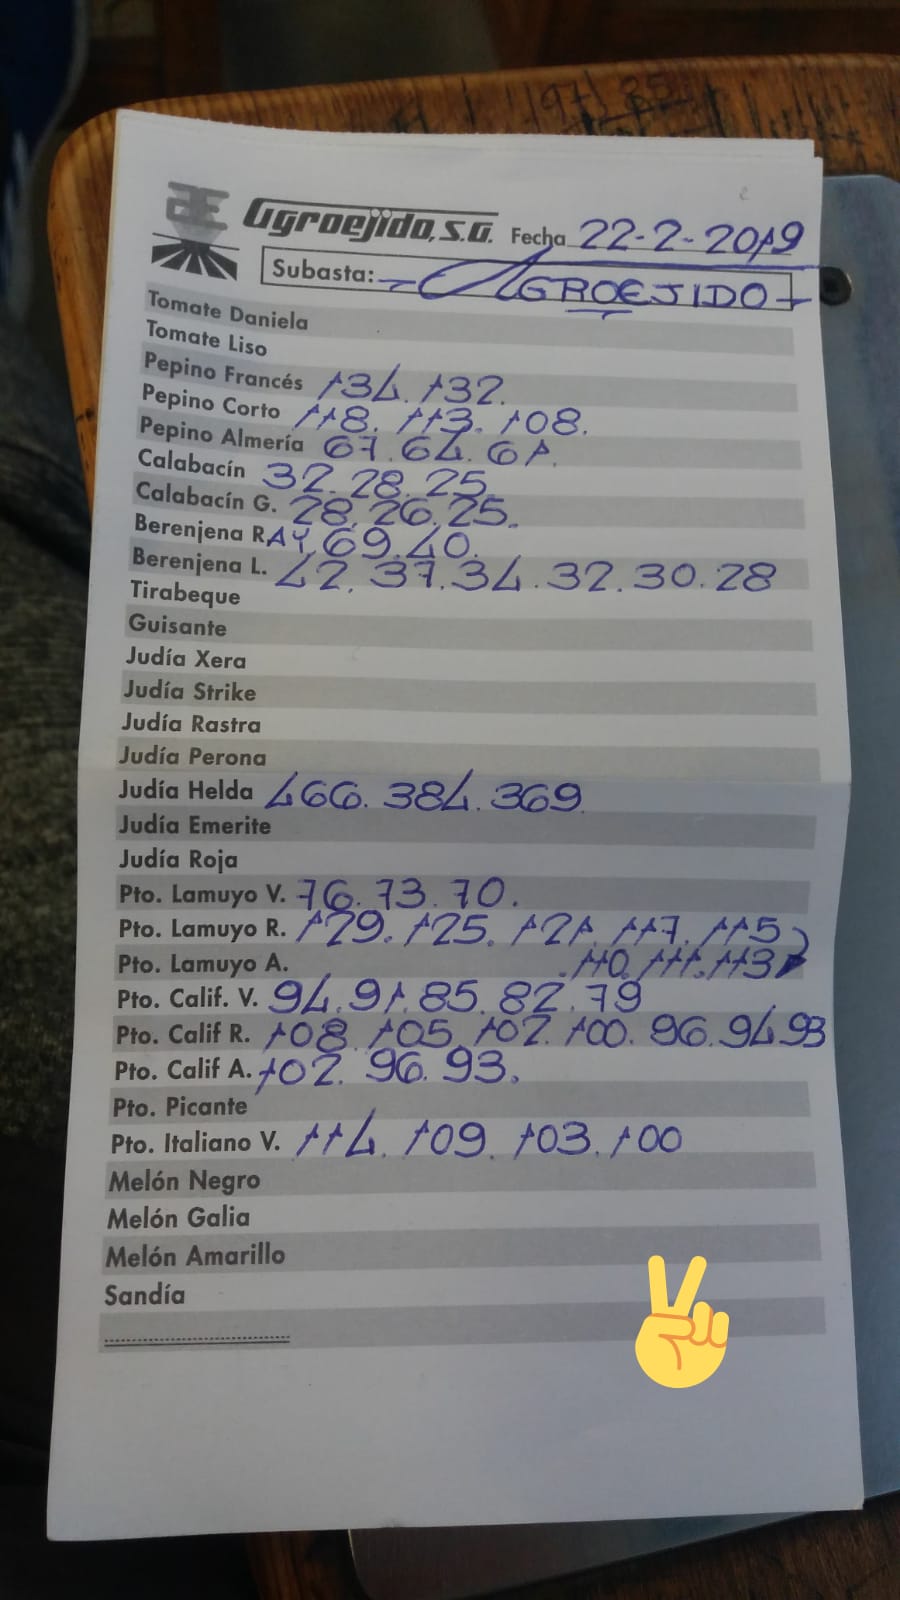 Agroejido, S.A. Fecha 22-2-2019
Subasta: - AGROEJIDO -
Tomate Daniela
Tomate Liso
Pepino Francés 134. 132.
Pepino Corto 118. 113. 108.
Pepino Almería 67. 64. 61.
Calabacín 32. 28. 25.
Calabacín G. 28. 26. 25.
Berenjena RAY. 69. 40.
Berenjena L. 42. 37. 34. 32. 30. 28
Tirabeque
Guisante
Judía Xera
Judía Strike
Judía Rastra
Judía Perona
Judía Helda 466. 384. 369.
Judía Emerite
Judía Roja
Pto. Lamuyo V. 76. 73. 70.
Pto. Lamuyo R. 129. 125. 121. 117. 115
Pto. Lamuyo A. .110. 111. 113
Pto. Calif. V. 94. 91. 85. 82. 79
Pto. Calif R. 108. 105. 102. 100. 96. 94 93
Pto. Calif A. 102. 96. 93.
Pto. Picante
Pto. Italiano V. 114. 109. 103. 100
Melón Negro
Melón Galia
Melón Amarillo
Sandía